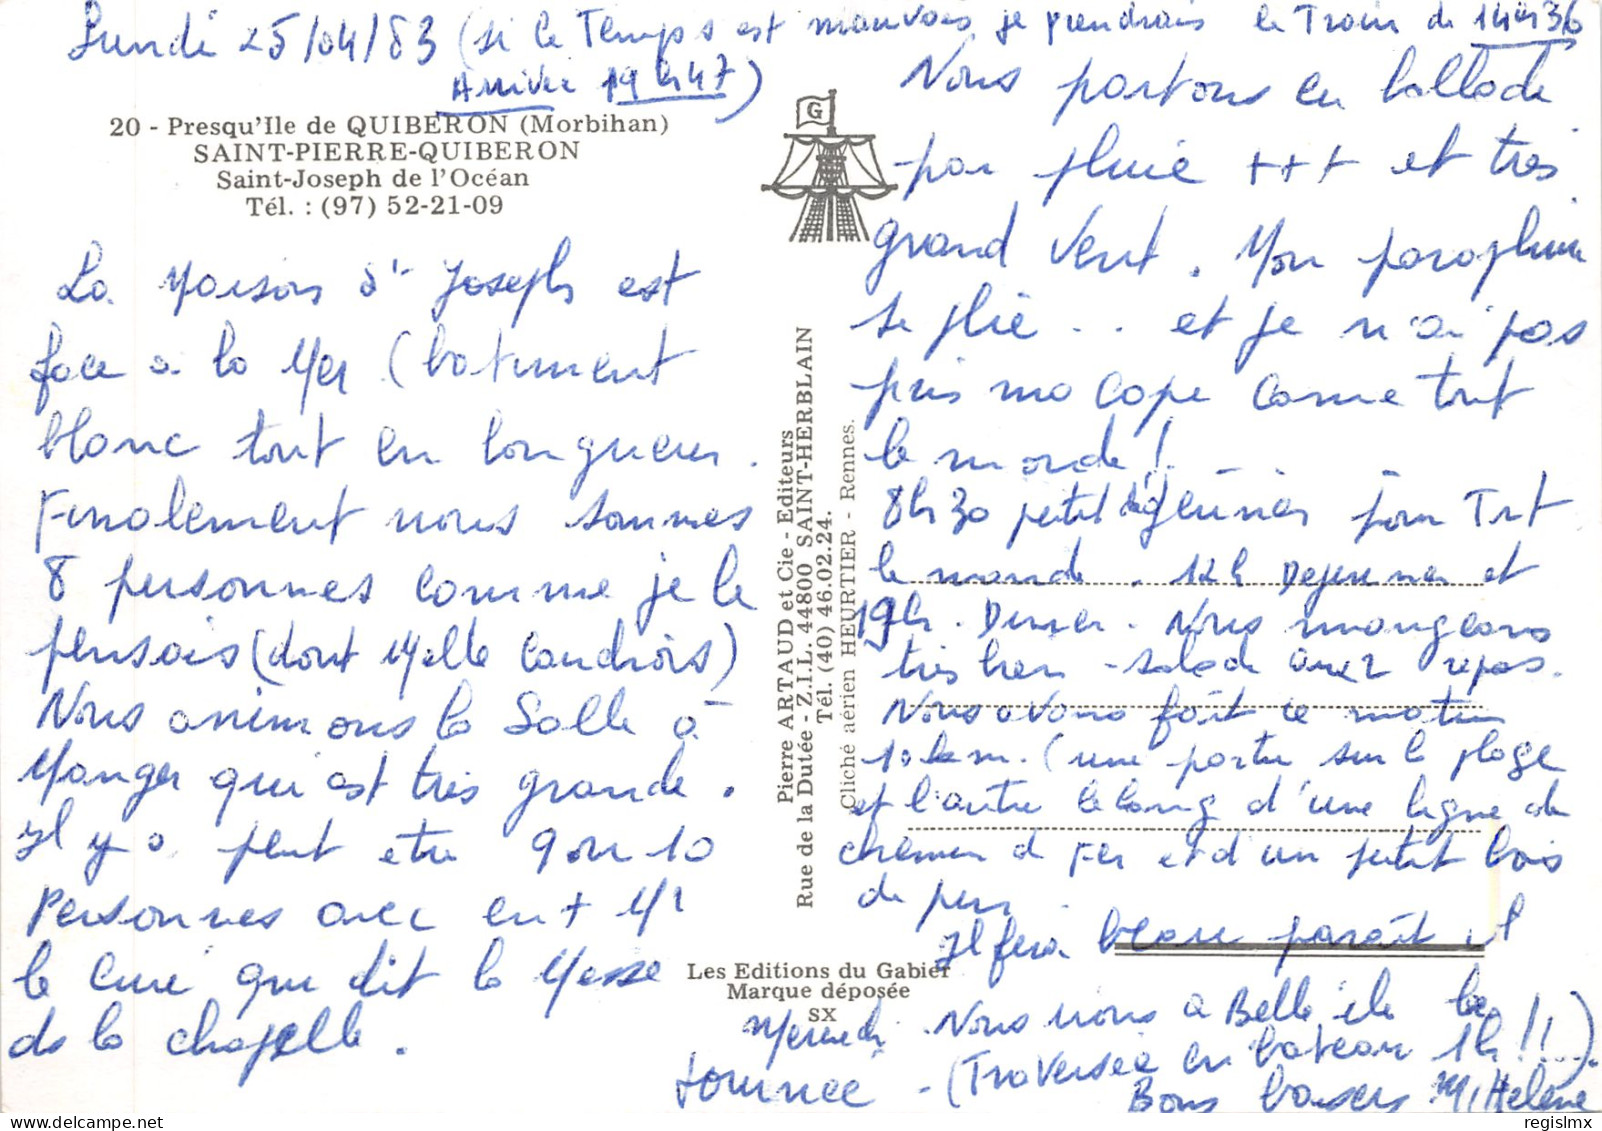 Lundi 25/04/83 (si le Temps est mauvais je prendrais le Train de 14H36
Arrivée 19h47)
20 - Presqu'Ile de QUIBERON (Morbihan)
SAINT-PIERRE-QUIBERON
Saint-Joseph de l'Océan
Tél. : (97) 52-21-09
La Maison St Joseph est
face à la Mer (batiment
blanc tout en longueur.
Finalement nous sommes
8 personnes comme je le
pensais (dont Melle Caudrois)
Nous animons la Salle à
Manger qui est très grande.
Il y a peut etre 9 ou 10
Personnes avec en + Mr
le Curé qui dit la Messe
ds la chapelle.
G
Pierre ARTAUD et Cie - Editeurs
Rue de la Dutée - Z.I.L. 44800 SAINT-HERBLAIN
Tél. (40) 46.02.24.
Cliché aérien HEURTIER - Rennes.
Les Editions du Gabier
Marque déposée
SX
Nous partons en ballade
par pluie +++ et très
grand Vent. Mon parapluie
se plie .. et je n'ai pas
pris ma Cape Comme tout
le monde!
8h30 petit déjeuner pour Tt
le monde. 12h Dejeuner et
19h. Diner. Nous mangeons
très bien - salade avec repas.
Nous avons fait ce matin
10 km. (une partie sur la plage
et l'autre le long d'une ligne de
chemin de Fer et d'un petit bois
de pin.
Il fera beau parait il
Mercredi. Nous irons à Belle ile la
Journée - (Traversée en bateau 1h!!...).
Bons baisers M. Hélène
regislmx